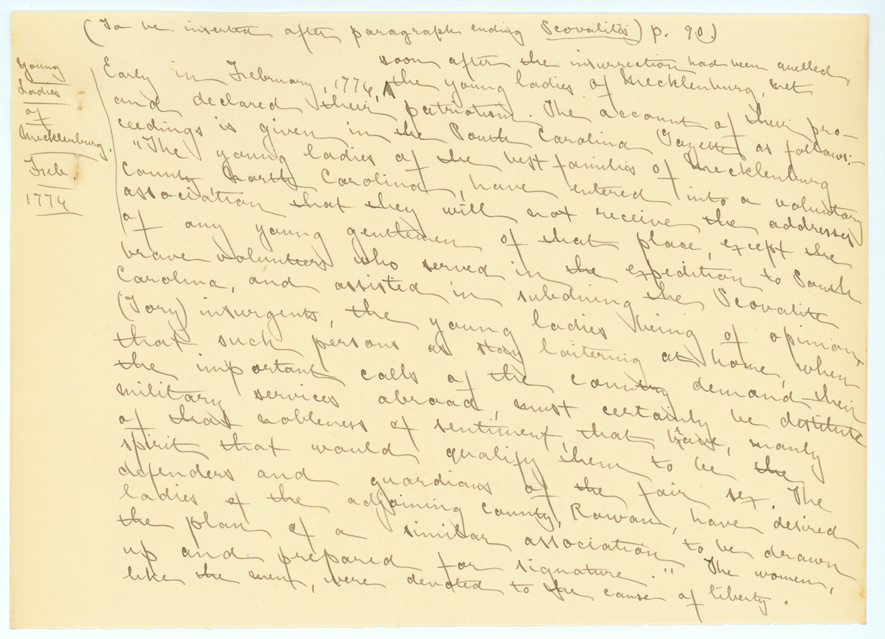 (To be inserted after paragraph ending Scovalites) p. 90)
Young
Ladies
of
Mecklenburg.
Feb.
1776
soon after the insurrection had been quelled,
Early in February, 1776, ^ the young ladies of Mecklenburg, met
and declared their patriotism. The account of their pro-
ceedings is given in the South Carolina Gazette as follows:-
"The young ladies of the best families of Mecklenburg
County North Carolina, have entered into a voluntary
association that they will not receive the addresses
of any young gentlemen of that place, except the
brave volunteers who served in the expedition to South
Carolina, and assisted in subduing the Scovalite
(Tory) insurgents, the young ladies being of opinion,
that such persons as stay loitering at home, when
the important calls of the country demand their
military services abroad, must certainly be destitute
of that nobleness of sentiment, that brave, manly
spirit that would qualify them to be the
defenders and guardians of the fair sex. The
ladies of the adjoining county, Rowan, have desired
the plan of a similar association to be drawn
up and prepared for signature." The women,
like the men, were devoted to the cause of liberty.